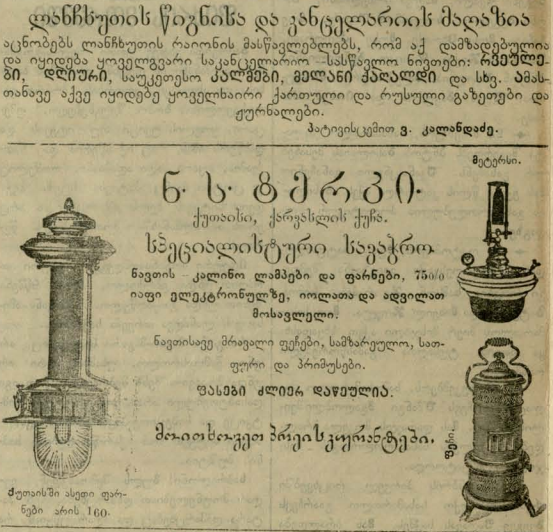 ლანჩხუთის წიგნისა და კანცელარიის მაღაზია
აცნობებს ლანჩხუთის რაიონის მასწავლებლებს, რომ აქ დამზადებულია
და იყიდება ყოველგვარი საკანცელარიო-სასწავლო ნივთები: რვეულე-
ბი, დღიური, საუკეთესო კალმები, მელანი ქაღალდი და სხვ. ამას-
თანავე აქვე იყიდება ყოველხაირი ქართული და რუსული გაზეთები და
ჟურნალები.
პატივისცემით ვ. კალანდაძე.
მეტეორსი.
ნ. ს. ტერპი.
ქუთაისი, ქარვასლის ქუჩა.
სპეციალისტური სავაჭრო
ნავთის-კალინო ლამპები და ფარნები, 75%
იაფი ელექტრონულზე, იოლათა და ადვილათ
მოსავლელი.
ნავთისავე მრავალი ფეჩები, სამზარეულო, სათ-
ფური და პრიმუსები.
ფასები ძლიერ დაწეულია.
მოითხოვეთ პრეისკურანტები.
ფეჩი.
ქუთაისში ასეთი ფარ-
ნები არის 160.